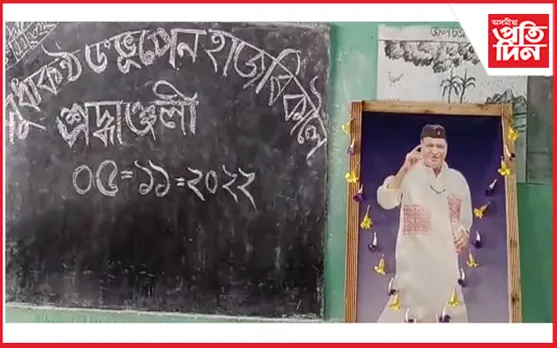 সুধাকণ্ঠ ড ভূপেন হাজৰিকালৈ
শ্ৰদ্ধাঞ্জলী
০৫=১১=২০২২
অসমীয়া
প্ৰতি
দিন